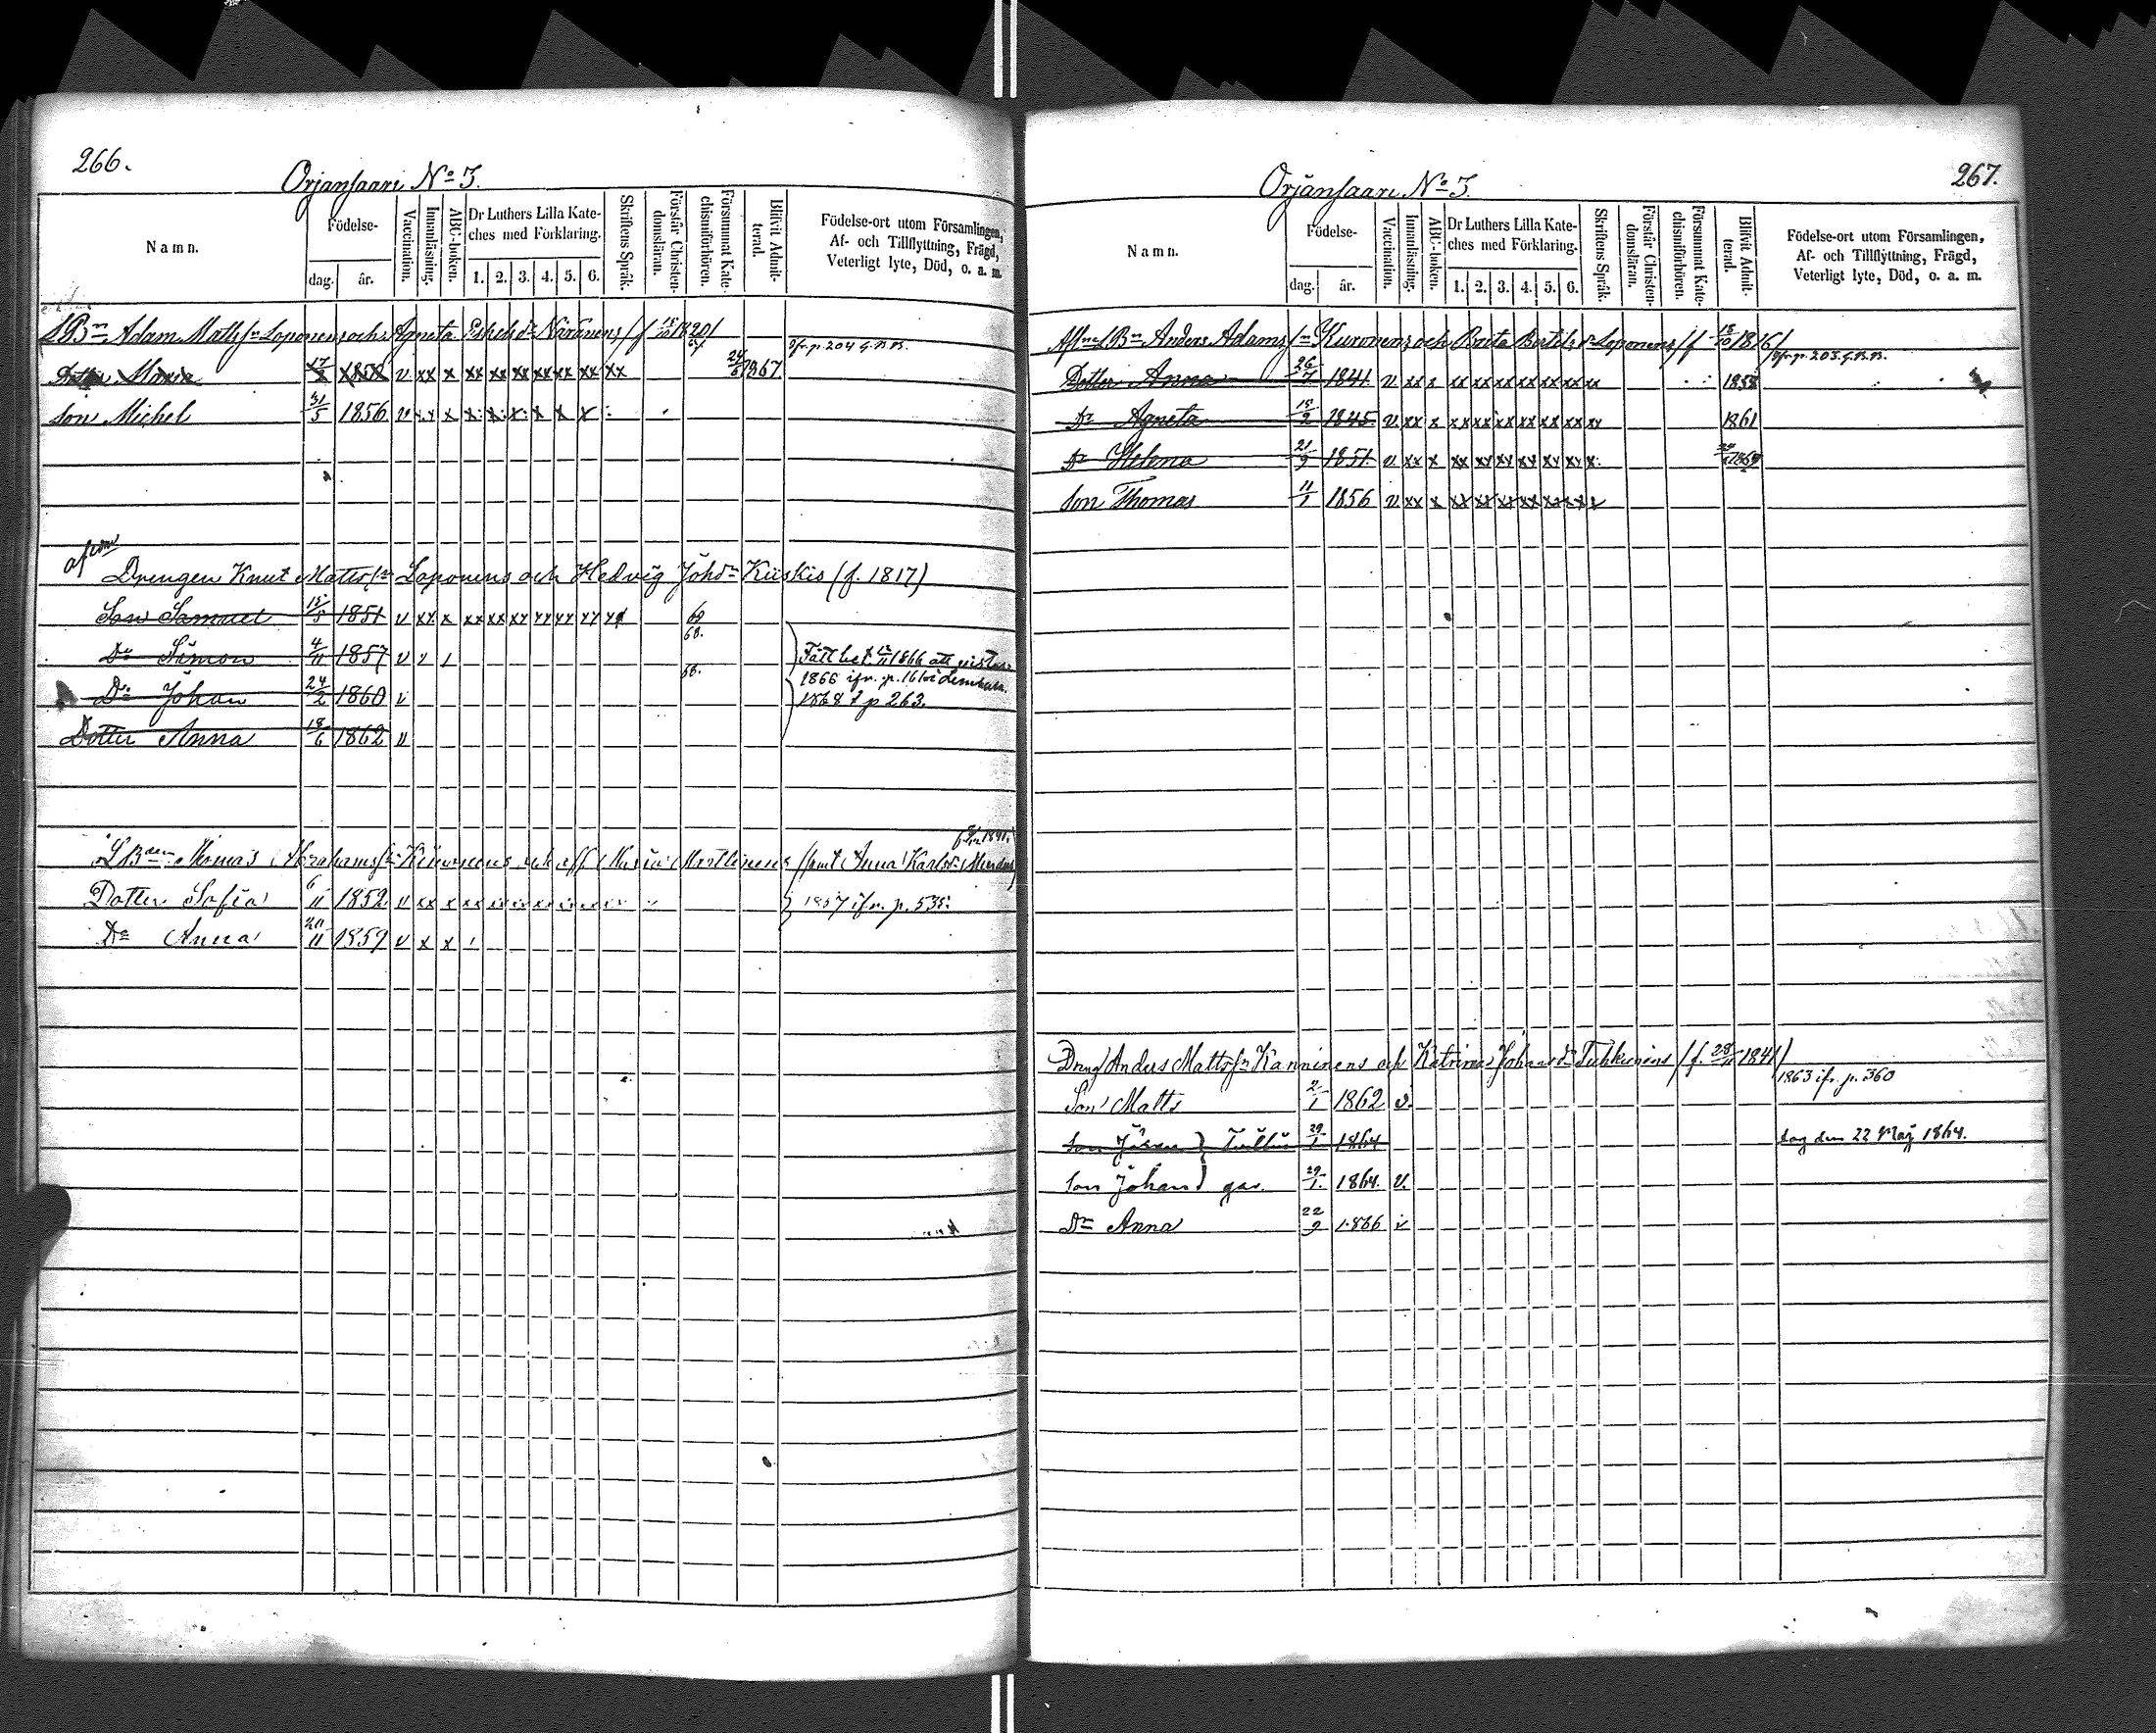 266.
Orjansaari No 3.
Namn.
Födelse-
dag. år.
Vaccination.
Innanläsning.
ABC-boken.
Dr Luthers Lilla Kate-
ches med Förklaring.
1. 2. 3. 4. 5. 6.
Skriftens Språk.
Förstår Christen-
domsläran.
Försummat Kate-
chismiförhören.
Blifvit Admit-
terad.
Födelse-ort utom Församlingen,
Af- och Tillflyttning, Frägd,
Veterligt lyte, Död, o. a. m.
LBn Adam Matts sn Loponens och Agneta Eskelsdr Näränens / f 1820/
Ifr. p. 204 g. K. B.
Dotter Maria 17 1850 v xx x xx xx xx xx xx xx xx 24 1867
Son Michel 31/5 1856 v x x x x x x x x
Drengen Knut Mattssn Loponens och Hedvig Johdr Kiiskis (f. 1817)
Son Samuel 15/5 1851 v xx x xx xx xx xx xx xx
68.
Dn Simon 4/11 1857 v
Dn Johan 24/2 1860 v
1866 ifr. p.
1868 t p 263.
Dotter Anna 18/6 1862 v
LBden Thomas Abrahamssn och Maria Anna Karlsdr
Dotter Sofia 6/11 1852 v xx x xx xx xx xx xx xx
1857 ifr. p. 535.
Dr Anna 20/11 1859 v x x
267.
Orjansaari No 3.
Namn.
Födelse-
dag. år.
Vaccination.
Innanläsning.
ABC-boken.
Dr Luthers Lilla Kate-
ches med Förklaring.
1. 2. 3. 4. 5. 6.
Skriftens Språk.
Förstår Christen-
domsläran.
Försummat Kate-
chismiförhören.
Blifvit Admit-
terad.
Födelse-ort utom Församlingen,
Af- och Tillflyttning, Frägd,
Veterligt lyte, Död, o. a. m.
LBn Anders Adams sn Kuronens och Brita Bertils dr Loponens / f 18/10 1816/
Ifr. p. 203. g. K. B.
Dotter Anna 26/7 1841 v xx x xx xx xx xx xx xx xx 1858
Dr Agneta 15/2 1845 v xx x xx xx xx xx xx xx xx 1861
Dr Helena 21/9 1851 v xx x xx xx xx xx xx xx x
Son Thomas 11/1 1856 v xx x xx xx xx xx xx xx x
Dreng Anders Mattssn Kanninens och Katrina Johansdr Tuhkunins / f. 28/11 1841/
1863 ifr. p. 360
Son Matts 2/1 1862 v.
Son 29/1 1864
dog den 22 Maj 1864.
Son Johan 29/1 1864. v.
Dr Anna 22/9 1866 v